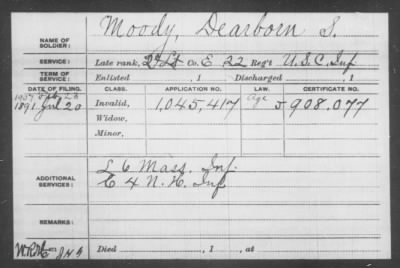 NAME OF SOLDIER: Moody, Dearborn S.
SERVICE: Late rank, 2d Lt Co. E, 22 Reg't U.S.C. Inf
TERM OF SERVICE: Enlisted , 1 Discharged , 1
DATE OF FILING. CLASS. APPLICATION NO. LAW. CERTIFICATE NO.
1907 Feb 26 Age
1891 Jul 20 Invalid, 1,045,417 908.077
Widow,
Minor,
ADDITIONAL SERVICES: L 6 Mass. Inf
C 4 N.H. Inf
REMARKS:
Died , 1 , at